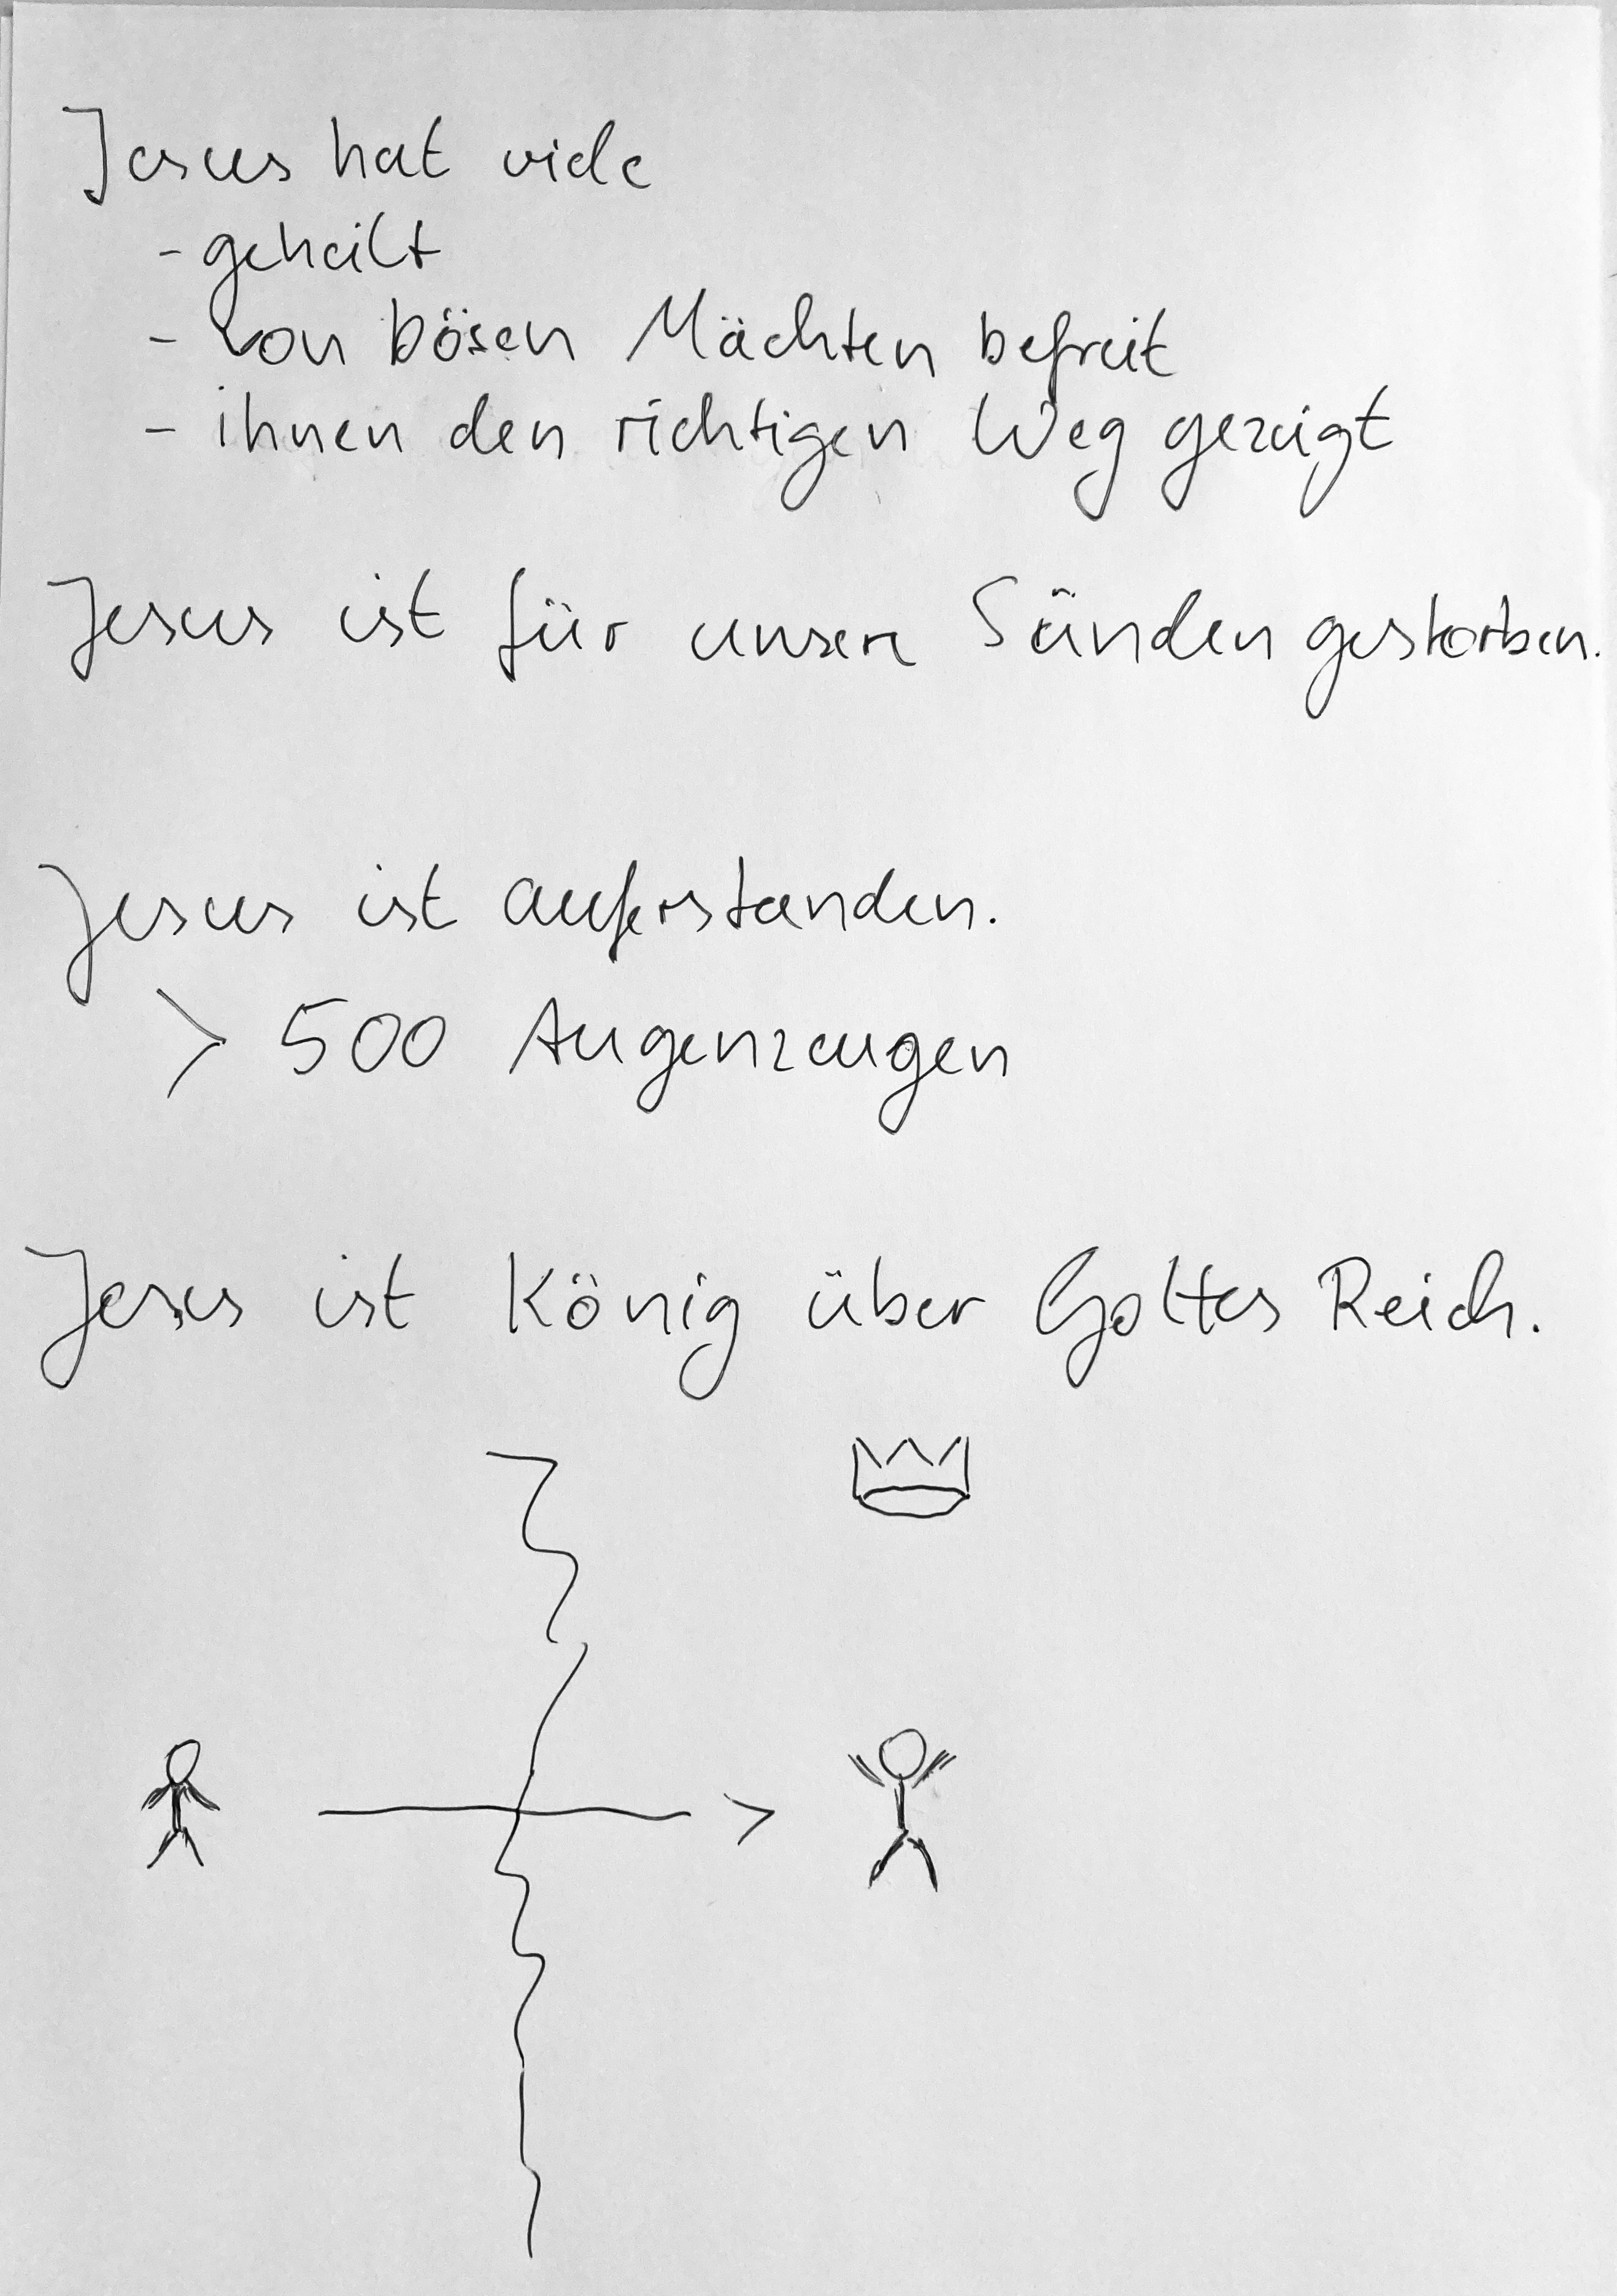 Jesus hat viele
- geheilt
- von bösen Mächten befreit
- ihnen den richtigen Weg gezeigt
Jesus ist für unsere Sünden gestorben.
Jesus ist auferstanden.
> 500 Augenzeugen
Jesus ist König über Gottes Reich.